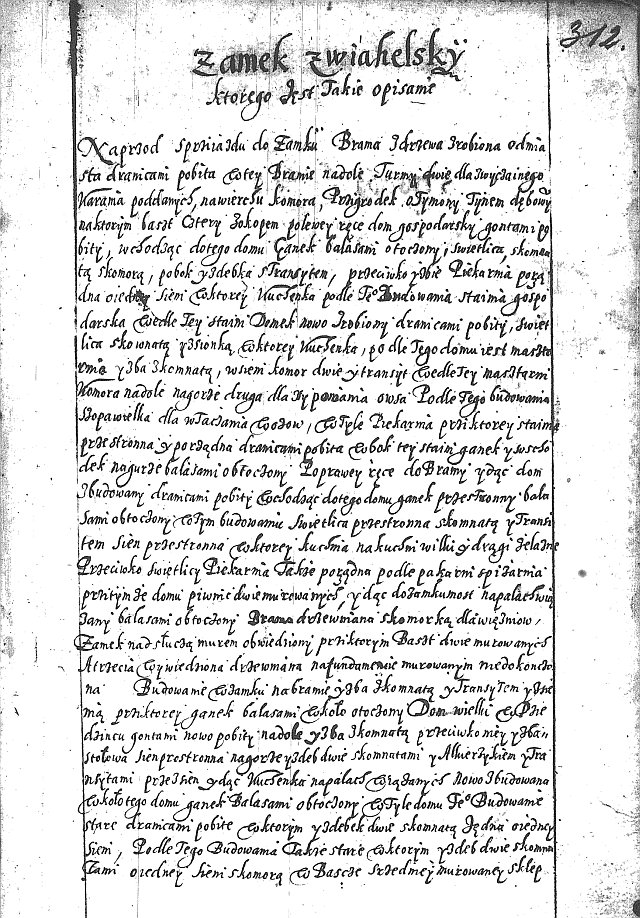 312.
Zamek Zwiahelskÿ
ktorego Jest Takie opisanie
Naprzod sprziazdu do Zamkü Brama zdrzewa zrobiona odmia
sta dranicami pobita w tey Bramie nadole Turmy dwie dla zwyczainego
Karania poddanych, nawierzchu komora, Przigrodek otymony Tynem dębowy
naktorym baszt Cztery zokopem polewey ręce dom gospodarsky gontami po
bity, wchodząc dotego domu Ganek balasami otoczony, swietlica, skomna
tą skomorą, pobok yzdebka sTransytem, przeciwko yzbie Piekarnia porzą
dna oiedney sieni w ktorey Kuchenka podle Te° Budowania stainia gospo
darska wedle Tey staini Domek nowo zrobiony dranicami pobity, swiet
lica skownatą ysionką w ktorey Kuchenka, podle Tego domu iest maszta
rnia yzba zkomnatą, wsieni komor dwie ytransyt wedle Tey masztarni
Komora nadole nagorze druga dla sypowania owsa Podle Tego budowania
szopa wielka dla wtaczania wozow, w tyle Piekarnia prziktorey stainia
przestronna y porządna dranicami pobita wbok tey staini ganek ywscho
dek nagurze balasami obtoczony Poprawey ręce do Bramy ydąc dom
zbudowany dranicami pobity wchodząc dotego domu ganek przestronny bala
sami obtoczony w tym budowaniu swietlica przestronna skomnatą yTransi
tem sien przestronna w ktorey kuchnia nakuchni wilki ydrągi żelazne
Przeciwko swietlicy Piekarnia Takze porządna podle pakarni spizarnia
przitymze domu piwnic dwie murowanych, ydąc dozamku most napalach wią
zany balasami obtoczony Brama drzewniana skomorką dla więzniow,
Zamek nadsłuczą murem obwiedziony prziktorym Baszt dwie murowanych
Atrzecia wywiedziona drzewniana nafundamencie murowanym niedokoncżo
na Budowanie wzamku nabramie yzba zkomnatą yTransytem yzie
mią prziktorey ganek balasami wkoło otoczony Dom wielki w Dzie
dzincu gontami nowo pobity nadole yzba zkomnatą przeciwko niey yzba
stołowa sien przestronna nagorze yzdeb dwie skomnatami yAlkierzykiem yTra
nsytami przezsien ydąc Kuchenka napalach wiązanych Nowo zbudowana
wkoło tego domu ganek Balasami obtoczony w tyle domu Te° Budowanie
stare dranicami pobite w ktorym yzdebek dwie skomnatą Jedną oiedney
sieni, Podle Tego Budowania Takze stare w ktorym yzdeb dwie skomna
Tami oiedney sieni skomorą w Baszcie srzedniey murowaney sklep